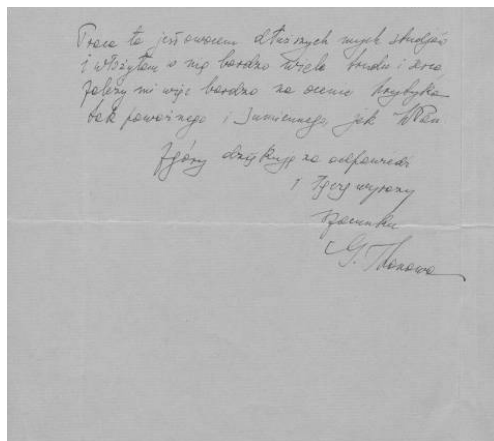 Praca ta jest owocem dłuższych mych studjów
i włożyłam w nią bardzo wiele trudu i serca
Zależy mi więc bardzo na ocenie krytyka
tak poważnego i sumiennego, jak WPan
Zgóry dziękuję za odpowiedź
i łączę wyrazy
szacunku
G.